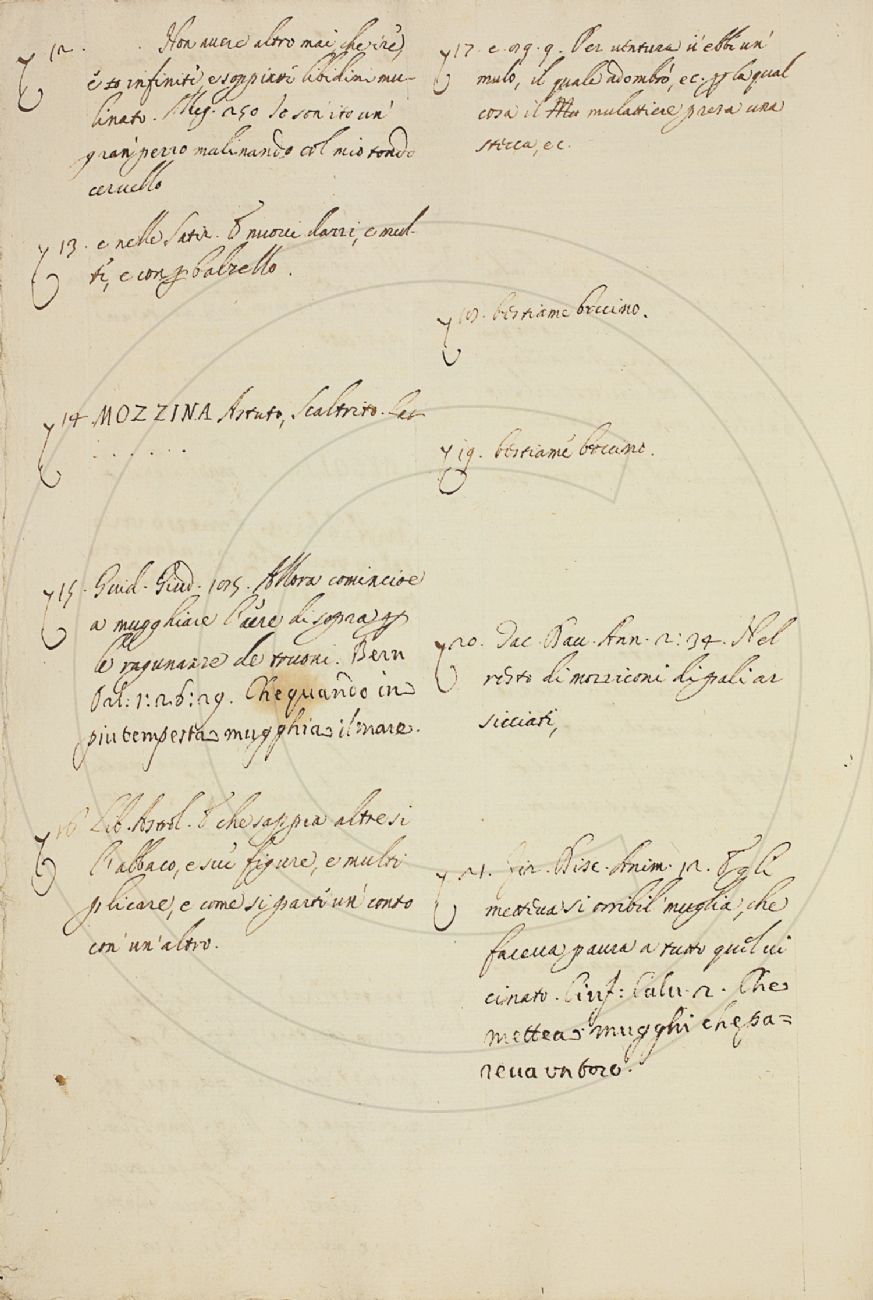 12. Non avere altro mai che ire,
e to infiniti e soppiati libidini mu-
linato. Meg. 250 Io son ito un'
gran' perro malinando col mio tondo
ceruello
13. e nelle Satir. E nuovi ilarri, e mul-
ti, e con balzello.
14 MOZZINA Astuto, Scaltrito.
. . . . . .
15. Guid. Giud. 105. Allora comincioe
a mugghiare l'aere di sopra p
le ragunanze de truoni. Bern
Orl: 1: 26: 29. Che quando in
piu tempesta mugghia il mare.
16 Lib. Astrol. E che sappia altresi
l'abbaco, e sue figure, e multi
plicare, e come si parti un' conto
con' un' altro.
17. e. 99. 9. Per ventura v'ebbi un'
mulo, il quale adombrò, ec. p la qual
cosa il mulattiere presa una
stecca, ec.
18. bestiame boccino.
19. bestiame boccino.
20. Dav. Ann. 2: 34. Nel
resto di mozziconi di pali ar
sicciati,
21. Fir. Disc. Anim. 12. E gli
metteva si orribil' muglia, che
faceva paura a tutto quel vi
cinato. Ciuf: Calu. 2. Che
mettea mugghi che pa=
reua un toro.